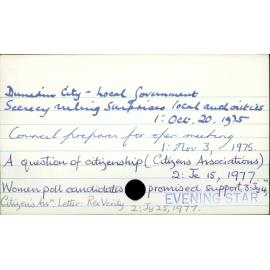 Dunedin City - Local Government
Secrecy ruling surprises local authorities
1: Oct. 20. 1975
Council prepares for open meeting
1: Nov. 3, 1975.
A question of citizenship (Citizens Associations)
2: Je 15, 1977
Women poll candidates promised support 3: Jy 14, "
Citizens Assn. Letter: Rex Verity
2: Jy 25, 1977.
EVENING STAR